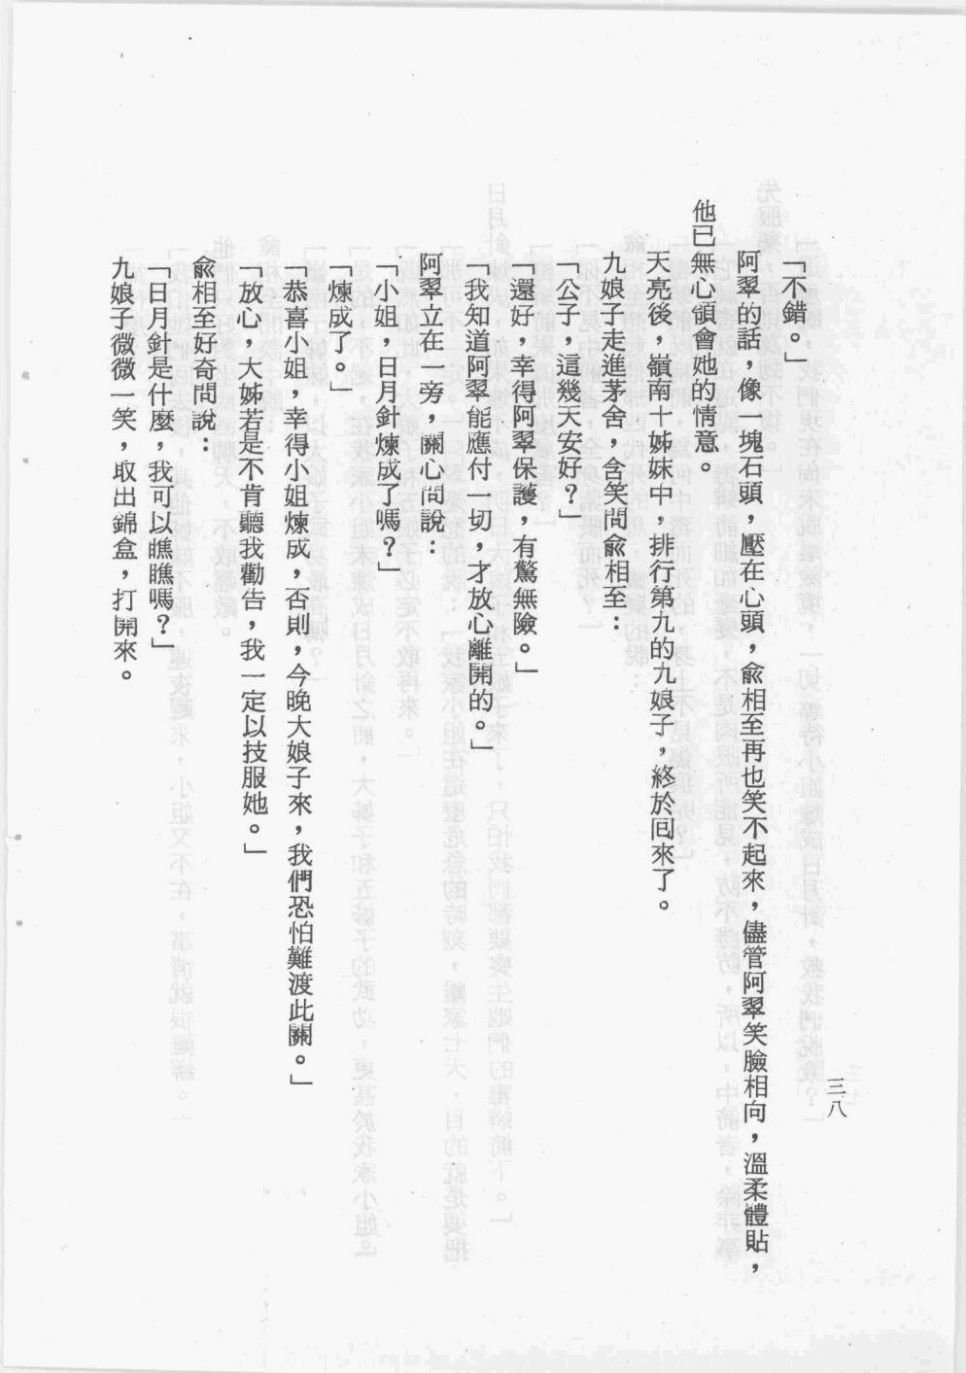 三八
「不錯。」
阿翠的話，像一塊石頭，壓在心頭，兪相至再也笑不起來，儘管阿翠笑臉相向，溫柔體貼，
他已無心領會她的情意。
天亮後，嶺南十姊妹中，排行第九的九娘子，終於回來了。
九娘子走進茅舍，含笑問兪相至：
「公子，這幾天安好？」
「還好，幸得阿翠保護，有驚無險。」
「我知道阿翠能應付一切，才放心離開的。」
阿翠立在一旁，關心問說：
「小姐，日月針煉成了嗎？」
「煉成了。」
「恭喜小姐，幸得小姐煉成，否則，今晚大娘子來，我們恐怕難渡此關。」
「放心，大姊若是不肯聽我勸告，我一定以技服她。」
兪相至好奇問說：
「日月針是什麼，我可以瞧瞧嗎？」
九娘子微微一笑，取出錦盒，打開來。